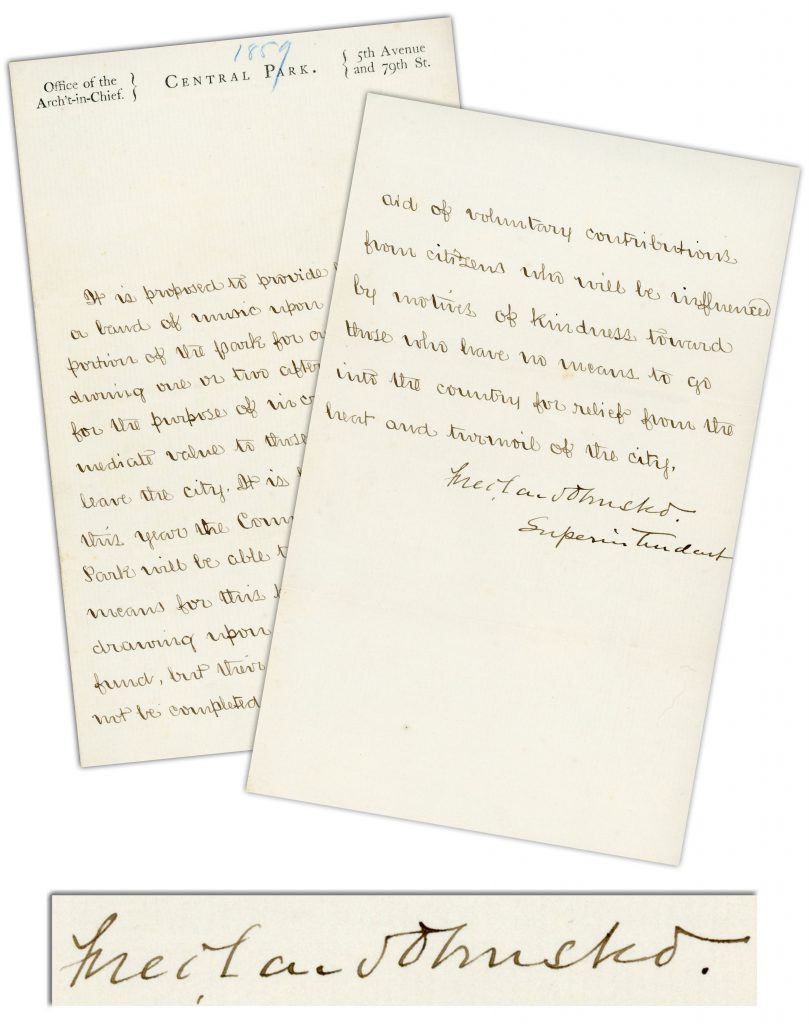 1859
Office of the
Arch't-in-Chief.
CENTRAL PARK.
5th Avenue
and 79th St.
It is proposed to provide
a band of music upon
portion of the Park for
during one or two after
for the purpose of inc
mediate value to those
leave the city. It is
this year the Com
Park will be able t
means for this
drawing upon
fund, but their
not be completed
aid of voluntary contributions
from citizens who will be influenced
by motives of kindness toward
those who have no means to go
into the country for relief from the
heat and turmoil of the city.
Fred. Law Olmsted.
Superintendent
Fred. Law Olmsted.